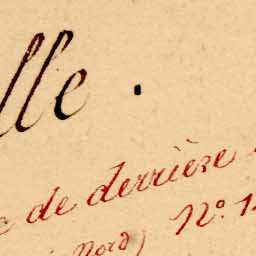 lle.
de derrière
Nord) N° 1